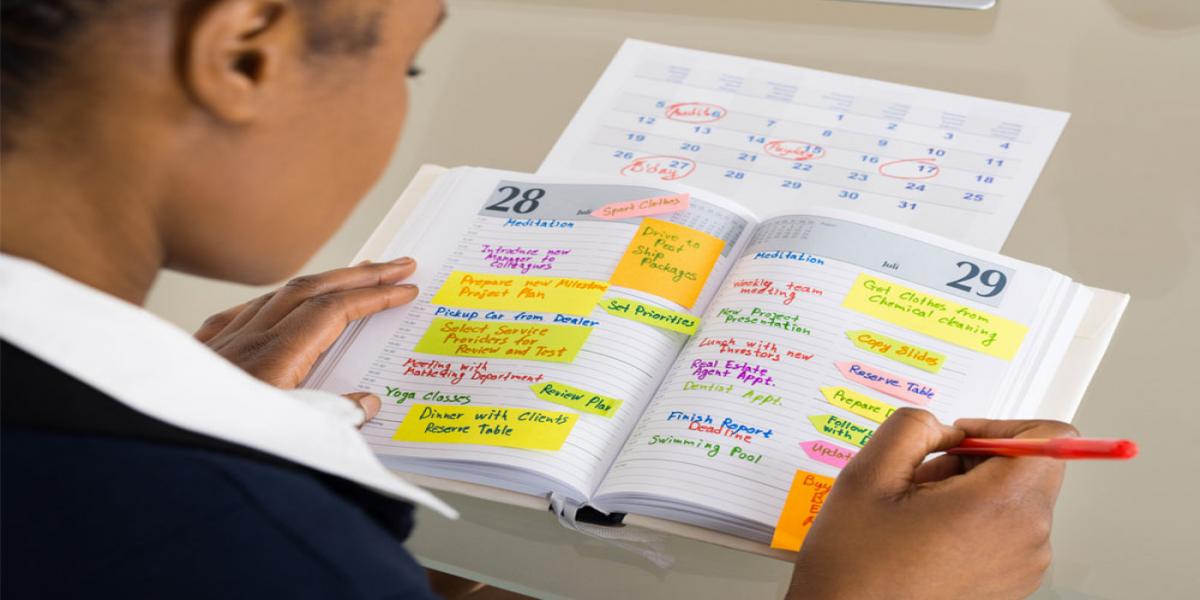 1 2 3 4
5 Audit 6 7 8 9 10 11
12 13 14 Payday 15 16 17 18
19 20 21 22 23 24 25
26 B'day 27 28 29 30 31
28
Juli
Sport Clothes
Meditation
Introduce new
Manager to
Colleagues
Drive to
Post
Ship
Packages
Prepare new Milestone
Project Plan
Set Priorities
Pickup Car from Dealer
Select Service
Providers for
Review and Test
Meeting with
Marketing Department
Review Plan
Yoga Classes
Dinner with Clients
Reserve Table
Juli
29
Meditation
Weekly team
meeting
Get Clothes from
Chemical cleaning
New Project
Presentation
Copy Slides
Lunch with new
Investors
Real Estate
Agent Appt.
Reserve Table
Dentist Appt.
Prepare
Follow
with
Finish Report
Deadline
Updat
Swimming Pool
Buy